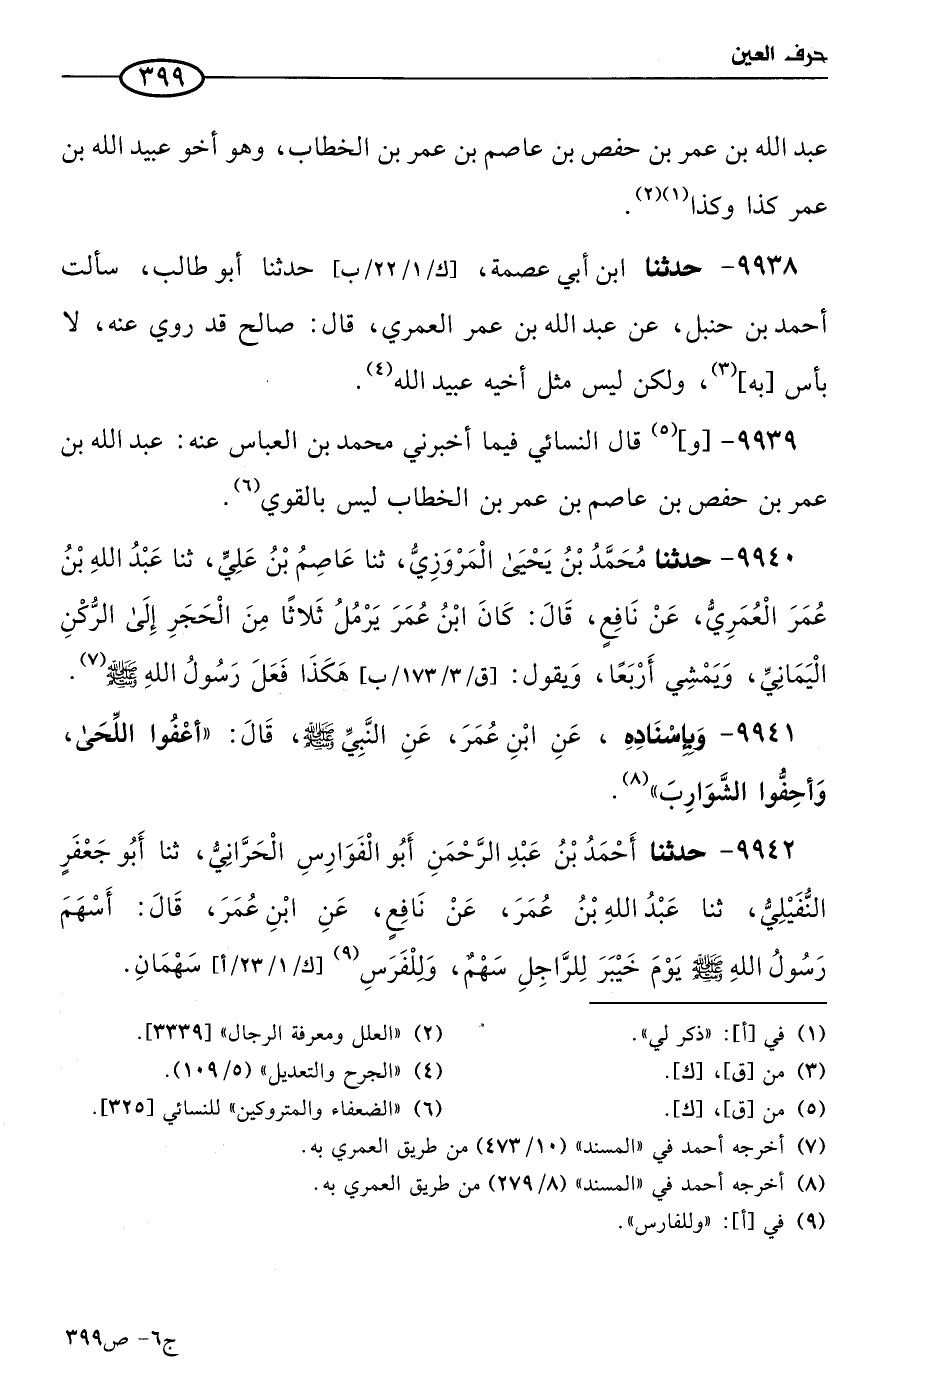 حرف العين
٣٩٩
عبد الله بن عمر بن حفص بن عاصم بن عمر بن الخطاب، وهو أخو عبيد الله بن
عمر كذا وكذا(١)(٢).
٩٩٣٨- حدثنا ابن أبي عصمة، [ك/١/٢٢/ب] حدثنا أبو طالب، سألت
أحمد بن حنبل، عن عبد الله بن عمر العمري، قال: صالح قد روي عنه، لا
بأس [به](٣)، ولكن ليس مثل أخيه عبيد الله(٤).
٩٩٣٩- [و](٥) قال النسائي فيما أخبرني محمد بن العباس عنه: عبد الله بن
عمر بن حفص بن عاصم بن عمر بن الخطاب ليس بالقوي(٦).
٩٩٤٠- حدثنا مُحَمَّدُ بْنُ يَحْيَىٰ الْمَرْوَزِيُّ، ثنا عَاصِمُ بْنُ عَلِيٍّ، ثنا عَبْدُ اللهِ بْنُ
عُمَرَ الْعُمَرِيُّ، عَنْ نَافِعٍ، قَالَ: كَانَ ابْنُ عُمَرَ يَرْمُلُ ثَلَاثًا مِنَ الْحَجَرِ إِلَىٰ الرُّكْنِ
الْيَمَانِيِّ، وَيَمْشِي أَرْبَعًا، وَيقول: [ق/٣/١٧٣/ب] هَكَذَا فَعَلَ رَسُولُ اللهِ ﷺ(٧).
٩٩٤١- وَبِإِسْنَادِهِ ، عَنِ ابْنِ عُمَرَ، عَنِ النَّبِيِّ ﷺ، قَالَ: «أعْفُوا اللِّحَىٰ،
وَأحِفُّوا الشَّوَارِبَ»(٨).
٩٩٤٢- حدثنا أَحْمَدُ بْنُ عَبْدِ الرَّحْمَنِ أَبُو الْفَوَارِسِ الْحَرَّانِيُّ، ثنا أَبُو جَعْفَرٍ
النُّفَيْلِيُّ، ثنا عَبْدُ اللهِ بْنُ عُمَرَ، عَنْ نَافِعٍ، عَنِ ابْنِ عُمَرَ، قَالَ: أَسْهَمَ
رَسُولُ اللهِ ﷺ يَوْمَ خَيْبَرَ لِلرَّاجِلِ سَهْمٌ، وَلِلْفَرَسِ(٩) [ك/١/٢٣/أ] سَهْمَانِ.
(١) في [أ]: «ذكر لي». (٢) «العلل ومعرفة الرجال» [٣٣٣٩].
(٣) من [ق]، [ك]. (٤) «الجرح والتعديل» (٥/١٠٩).
(٥) من [ق]، [ك]. (٦) «الضعفاء والمتروكين» للنسائي [٣٢٥].
(٧) أخرجه أحمد في «المسند» (١٠/٤٧٣) من طريق العمري به.
(٨) أخرجه أحمد في «المسند» (٨/٢٧٩) من طريق العمري به.
(٩) في [أ]: «وللفارس».
ج٦- ص٣٩٩